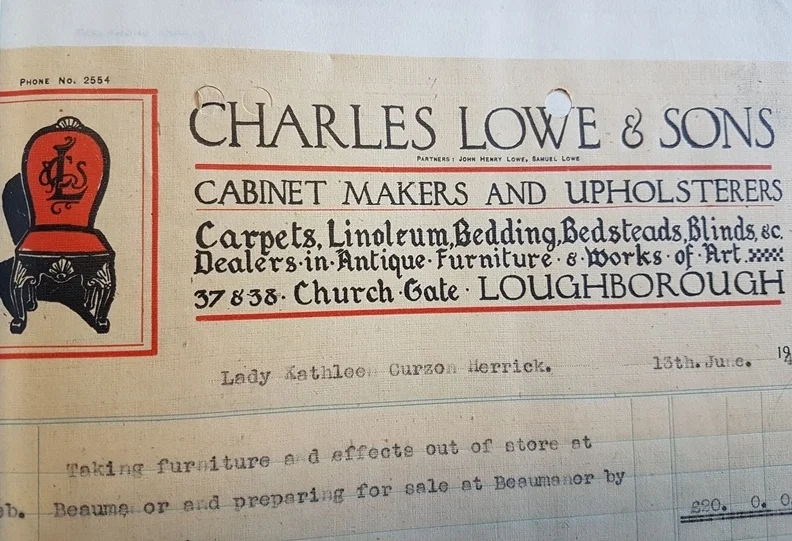 PHONE No. 2554
CHARLES LOWE & SONS
PARTNERS: JOHN HENRY LOWE, SAMUEL LOWE
CABINET MAKERS AND UPHOLSTERERS
Carpets, Linoleum, Bedding, Bedsteads, Blinds, &c.
Dealers·in·Antique·Furniture·&·Works·of·Art
37 & 38· Church·Gate· LOUGHBOROUGH
Lady Kathleen Curzon Herrick. 13th. June. 19
Taking furniture and effects out of store at
eb. Beaumanor and preparing for sale at Beaumanor by
£20. 0. 0